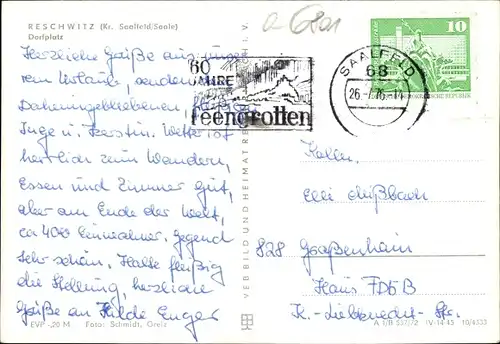 RESCHWITZ (Kr. Saalfeld/Saale)
Dorfplatz
Herzliche Grüße aus unse-
rem Urlaub, senden
Daheimgebliebenen,
Inge u. Kerstin. Wetter ist
herrlich zum Wandern,
Essen und Zimmer gut,
aber am Ende der Welt,
ca 400 Einwohner, Gegend
sehr schön. Halte fleißig
die Stellung, herzliche
Grüße an Hilde Enger
EVP -,20 M Foto: Schmidt, Greiz
VEB BILD UND HEIMAT REICHENBACH I. V.
60
JAHRE
feengrotten
SAALFELD
68
26.-7.76-14
10
DEUTSCHE DEMOKRATISCHE REPUBLIK
Kolln.
Elli Mißbach
828 Großenhain
Haus FDGB
K.-Liebknecht-Str.
A 1/B 557/72 IV-14-45 10/4533